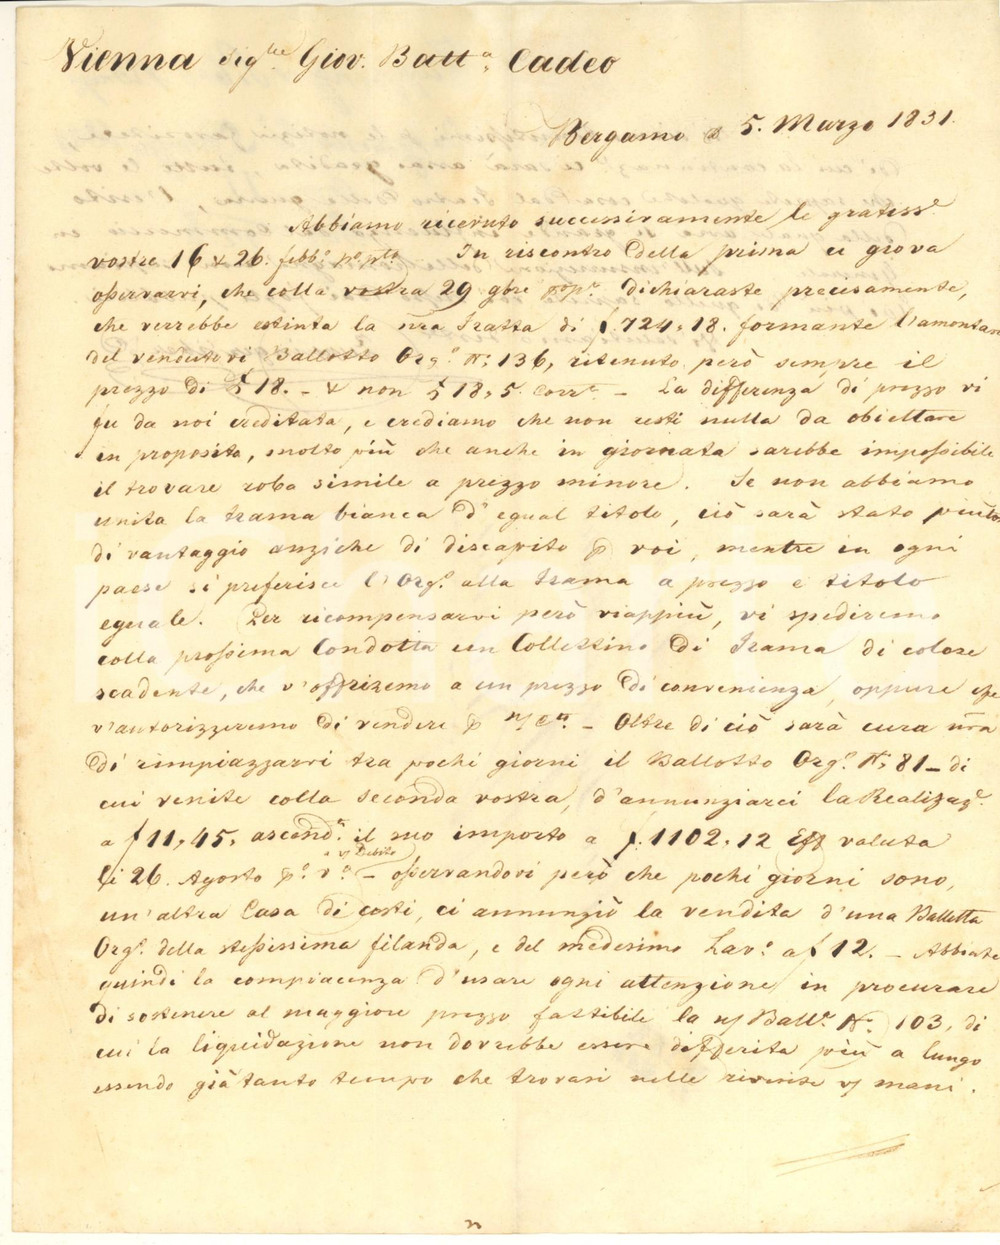 Vienna Sig.re Giov. Batt.a Cadeo
Bergamo a 5. Marzo 1831.
Abbiamo ricevuto successivamente le gratess.e
vostre 16 & 26. febb.o po. pto. In riscontro della prima ci giova
osservarvi, che colla vostra 29 9bre dichiaraste precisamente,
che verrebbe estinta la nra Tratta di f. 724,18. formante l'amontare
del vendutovi Ballotto Org.o N; 136, ritenuto però sempre il
prezzo di f 18. - & non f 18,5. corr.e - La differenza di prezzo vi
fu da noi creditata, e crediamo che non resti nulla da obiettare
in proposito, molto più che anche in giornata sarebbe impossibile
il trovare roba simile a prezzo minore. Se non abbiamo
unita la trama bianca d'egual titolo, ciò sarà stato piutto
di vantaggio anziche di discapito p voi, mentre in ogni
paese si preferisce l'Org.o alla trama a prezzo e titolo
eguale. Per ricompensarvi però viappiù, vi spediremo
colla prossima Condotta un Collettino di Trama di colore
scadente, che v'offriremo a un prezzo di convenienza, oppure che
v'autorizzeremo di vendere p n/ c.to - Oltre di ciò sarà cura nra
di rimpiazzarvi tra pochi giorni il Ballotto Org.o N; 81 - di
cui venite colla seconda vostra, d'annunziarci la Realizaz.e
a f 11,45, ascend.e il suo importo a f. 1102.12 Eff valuta
li 26. Agosto p.o v.o - osservandovi però che pochi giorni sono,
v/ Debito
un'altra Casa di costì, ci annunziò la vendita d'una Balletta
Org.o della stessissima filanda, e del medesimo Lav.o a f 12. - Abbiate
quindi la compiacenza d'usare ogni attenzione in procurare
di sostenere al maggiore prezzo fattibile la n/ Ball.a N.o 103, di
cui la liquidazione non dovrebbe essere defferita più a lungo
essendo già tanto tempo che trovasi nelle riverite v/ mani.